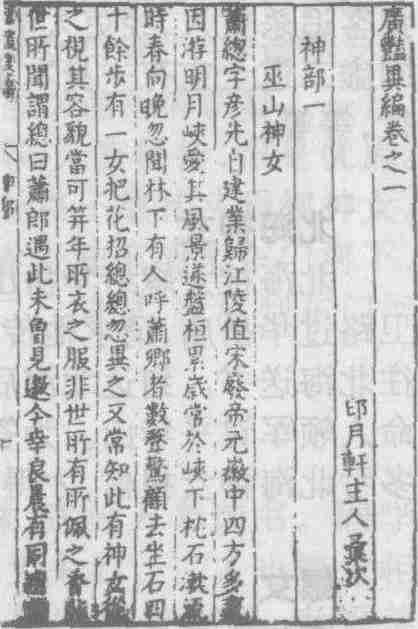 廣豔異編卷之一
印月軒主人彙次
神部一
巫山神女
蕭總字彥先自建業歸江陵值宋廢帝元徽中四方多
因游明月峽愛其風景遂盤桓累歲常於峽下枕石漱流
時春向晚忽聞林下有人呼蕭卿者數聲驚顧去坐石四
十餘步有一女把花招總總忽異之又常知此有神女從
之視其容貌當可笄年所衣之服非世所有所佩之香
世所聞謂總曰蕭郎遇此未曾見邀今幸良晨有同